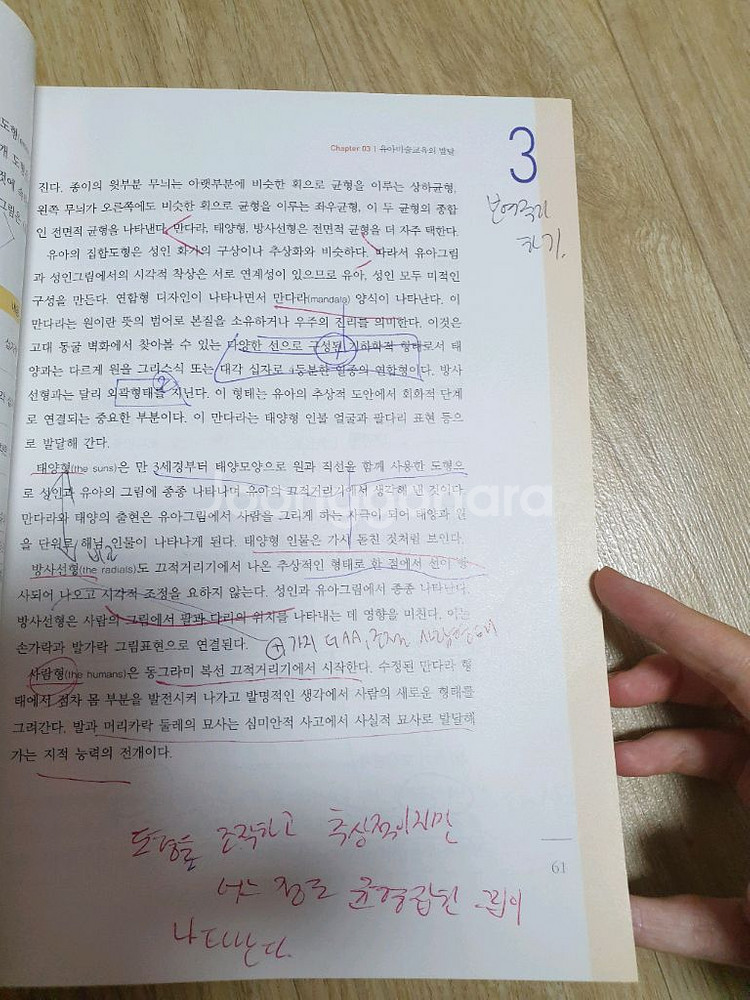 Chapter 03 | 유아미술교육의 발달
3
진다. 종이의 윗부분 무늬는 아랫부분에 비슷한 획으로 균형을 이루는 상하균형,
왼쪽 무늬가 오른쪽에도 비슷한 획으로 균형을 이루는 좌우균형, 이 두 균형의 종합
인 전면적 균형을 나타낸다. 만다라, 태양형, 방사선형은 전면적 균형을 더 자주 택한다.
유아의 집합도형은 성인 화가의 구상이나 추상화와 비슷하다. 따라서 유아그림
과 성인그림에서의 시각적 착상은 서로 연계성이 있으므로 유아, 성인 모두 미적인
구성을 만든다. 연합형 디자인이 나타나면서 만다라(mandala) 양식이 나타난다. 이
만다라는 원이란 뜻의 범어로 본질을 소유하거나 우주의 진리를 의미한다. 이것은
고대 동굴 벽화에서 찾아볼 수 있는 다양한 선으로 구성된 기하학적 형태로서 태
양과는 다르게 원을 그리스식 또는 대각 십자로 4등분한 일종의 연합형이다. 방사
선형과는 달리 외곽형태를 지닌다. 이 형태는 유아의 추상적 도안에서 회화적 단계
로 연결되는 중요한 부분이다. 이 만다라는 태양형 인물 얼굴과 팔다리 표현 등으
로 발달해 간다.
태양형(the suns)은 만 3세경부터 태양모양으로 원과 직선을 함께 사용한 도형으
로 성인과 유아의 그림에 종종 나타나며 유아의 끄적거리기에서 생각해 낸 것이다.
만다라와 태양의 출현은 유아그림에서 사람을 그리게 하는 자극이 되어 태양과 원
을 단위로 해님 인물이 나타나게 된다. 태양형 인물은 가시 돋친 것처럼 보인다.
방사선형(the radials)도 끄적거리기에서 나온 추상적인 형태로 한 점에서 선이 방
사되어 나오고 시각적 조정을 요하지 않는다. 성인과 유아그림에서 종종 나타난다.
방사선형은 사람의 그림에서 팔과 다리의 위치를 나타내는 데 영향을 미친다. 이는
손가락과 발가락 그림표현으로 연결된다.
사람형(the humans)은 동그라미 복선 끄적거리기에서 시작한다. 수정된 만다라 형
태에서 점차 몸 부분을 발전시켜 나가고 발명적인 생각에서 사람의 새로운 형태를
그려간다. 발과 머리카락 둘레의 묘사는 심미안적 사고에서 사실적 묘사로 발달해
가는 지적 능력의 전개이다.
도형을 조작하고 추상적이지만
어느 정도 균형잡힌 그림이
나타난다.
61